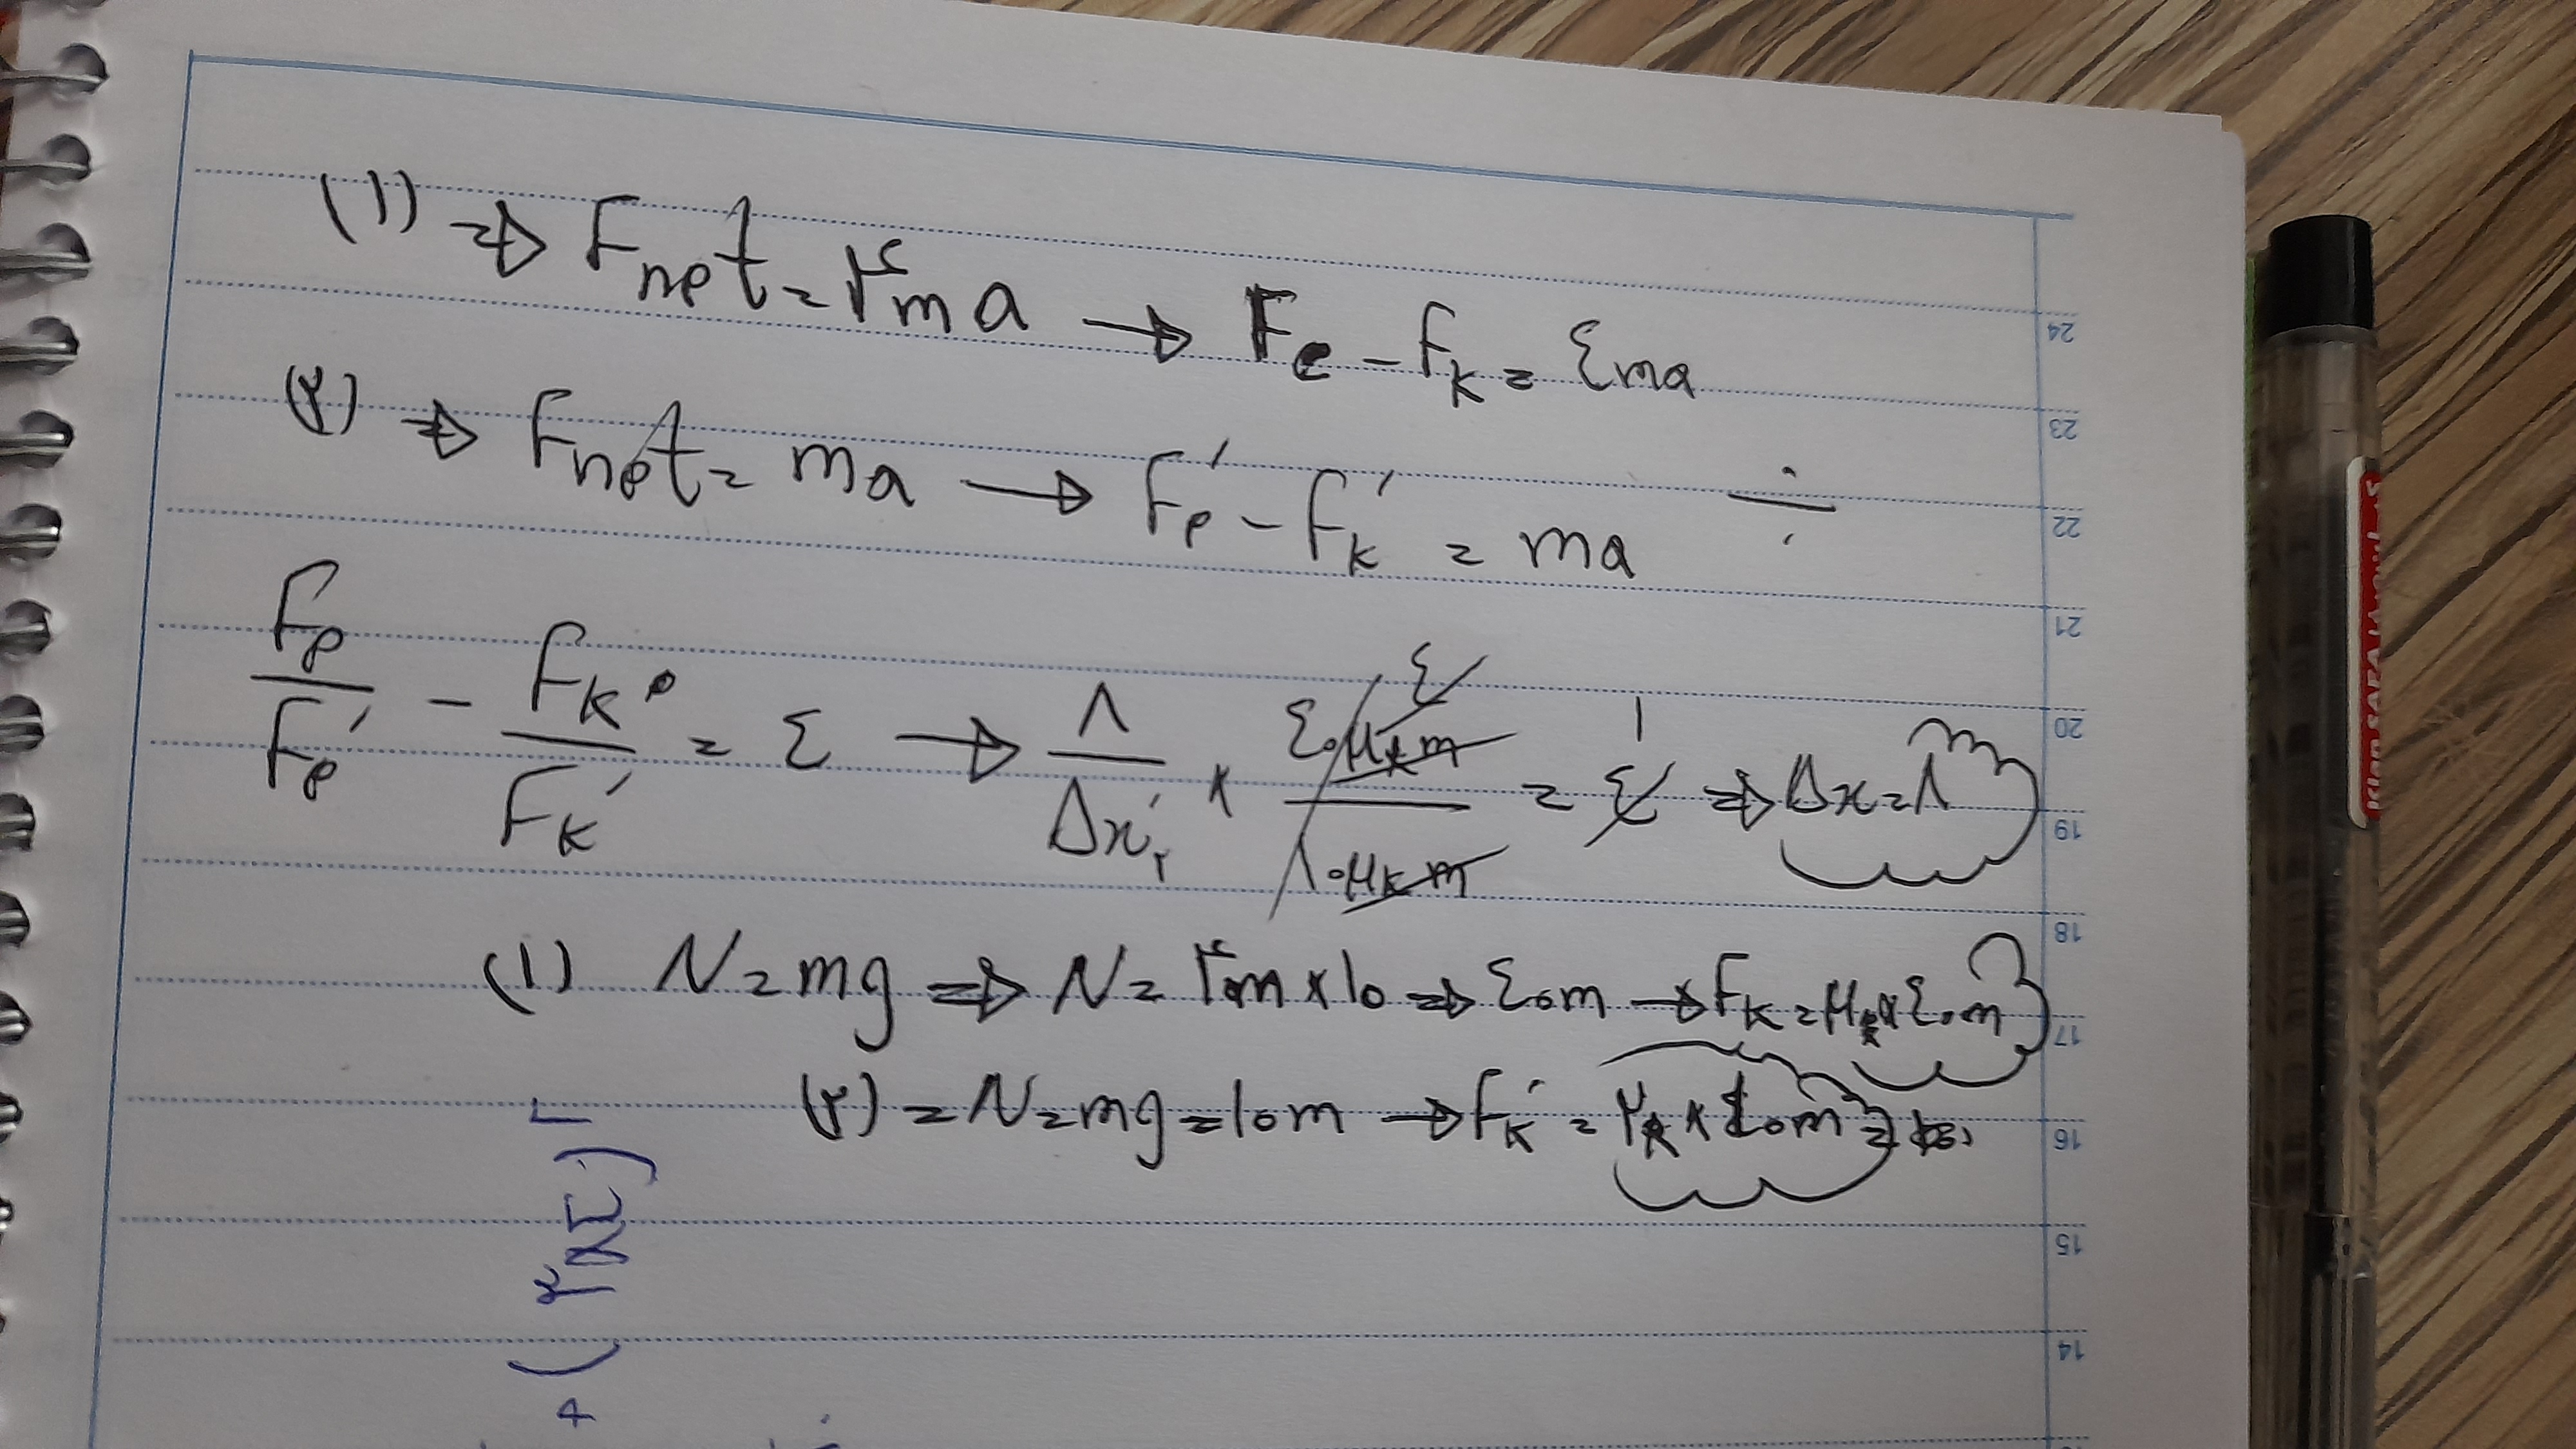 (۱) ⇒ Fnet = ۴ma → Fe - Fk = ۴ma
(۲) ⇒ Fnet = ma → F'e - F'k = ma ÷
Fe/F'e - Fk/F'k = ۴ → ۸/Δx'₂ × ۴۰μkm/۱۰μkm = ۴ ⇒ Δx = ۸
(۱) N = mg ⇒ N = ۴m × ۱۰ ⇒ ۴۰m → Fk = μk × ۴۰m
(۲) = N = mg = ۱۰m → F'k = μk × ۱۰m
24
23
22
21
20
19
18
17
16
15
14